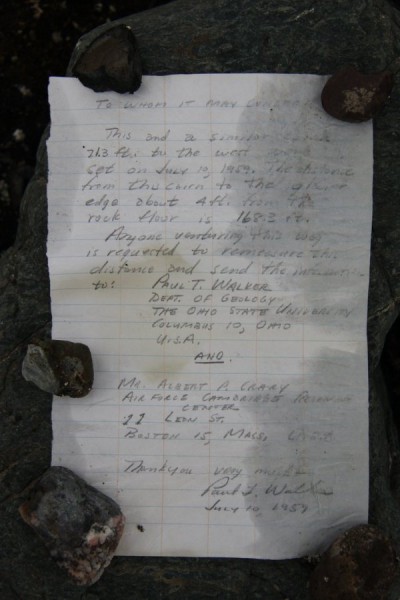 TO WHOM IT MAY CONCERN
This and a similar
21.3 ft. to the west were
set on July 10, 1959. The distance
from this cairn to the glacier
edge about 4 ft. from the
rock floor is 168.3 ft.
Anyone venturing this way
is requested to remeasure this
distance and send the information
to: PAUL T. WALKER
DEPT. OF GEOLOGY
THE OHIO STATE UNIVERSITY
COLUMBUS 10, OHIO
U.S.A.
AND.
MR. ALBERT P. CRARY
AIR FORCE CAMBRIDGE RESEARCH
CENTER
11 LEON ST.
BOSTON 15, MASS, U.S.A.
Thankyou very much
Paul T. Walker
JULY 10, 1959